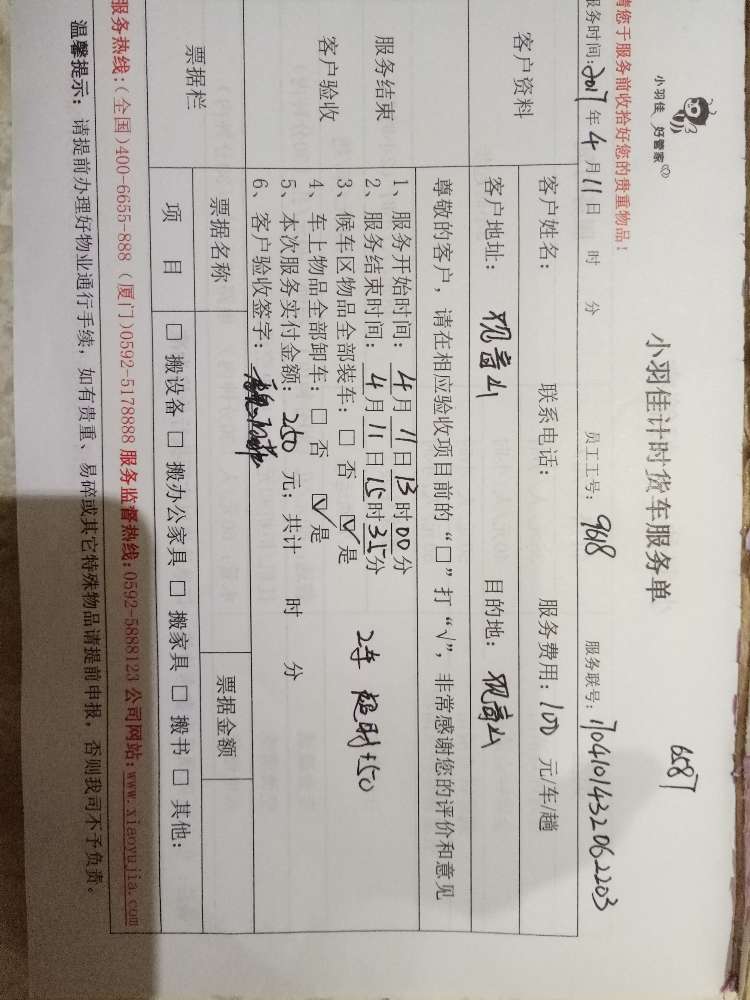 小羽佳 好管家
小羽佳计时货车服务单
6587
请您于服务前收拾好您的贵重物品！
服务时间：2017年4月11日 时 分 员工工号：9618 服务联号：1704101432062203
客户资料
客户姓名： 联系电话： 服务费用：100 元/车/趟
客户地址：观音山 目的地：观音山
服务结束
客户验收
尊敬的客户，请在相应验收项目前的“□”打“√”，非常感谢您的评价和意见
1、服务开始时间：4月11日13时00分
2、服务结束时间：4月11日15时35分
3、候车区物品全部装车：□ 否 ☑ 是
4、车上物品全部卸车：□ 否 ☑ 是
5、本次服务实付金额：250 元；共计 时 分
6、客户验收签字：
2车 超时+50
票据栏
票据名称 票据金额
项 目 □ 搬设备 □ 搬办公家具 □ 搬家具 □ 搬书 □ 其他：
服务热线：（全国）400-6655-888（厦门）0592-5178888 服务监督热线：0592-5888123 公司网站：www.xiaoyujia.com
温馨提示：请提前办理好物业通行手续，如有贵重、易碎或其它特殊物品请提前申报，否则我司不予负责。